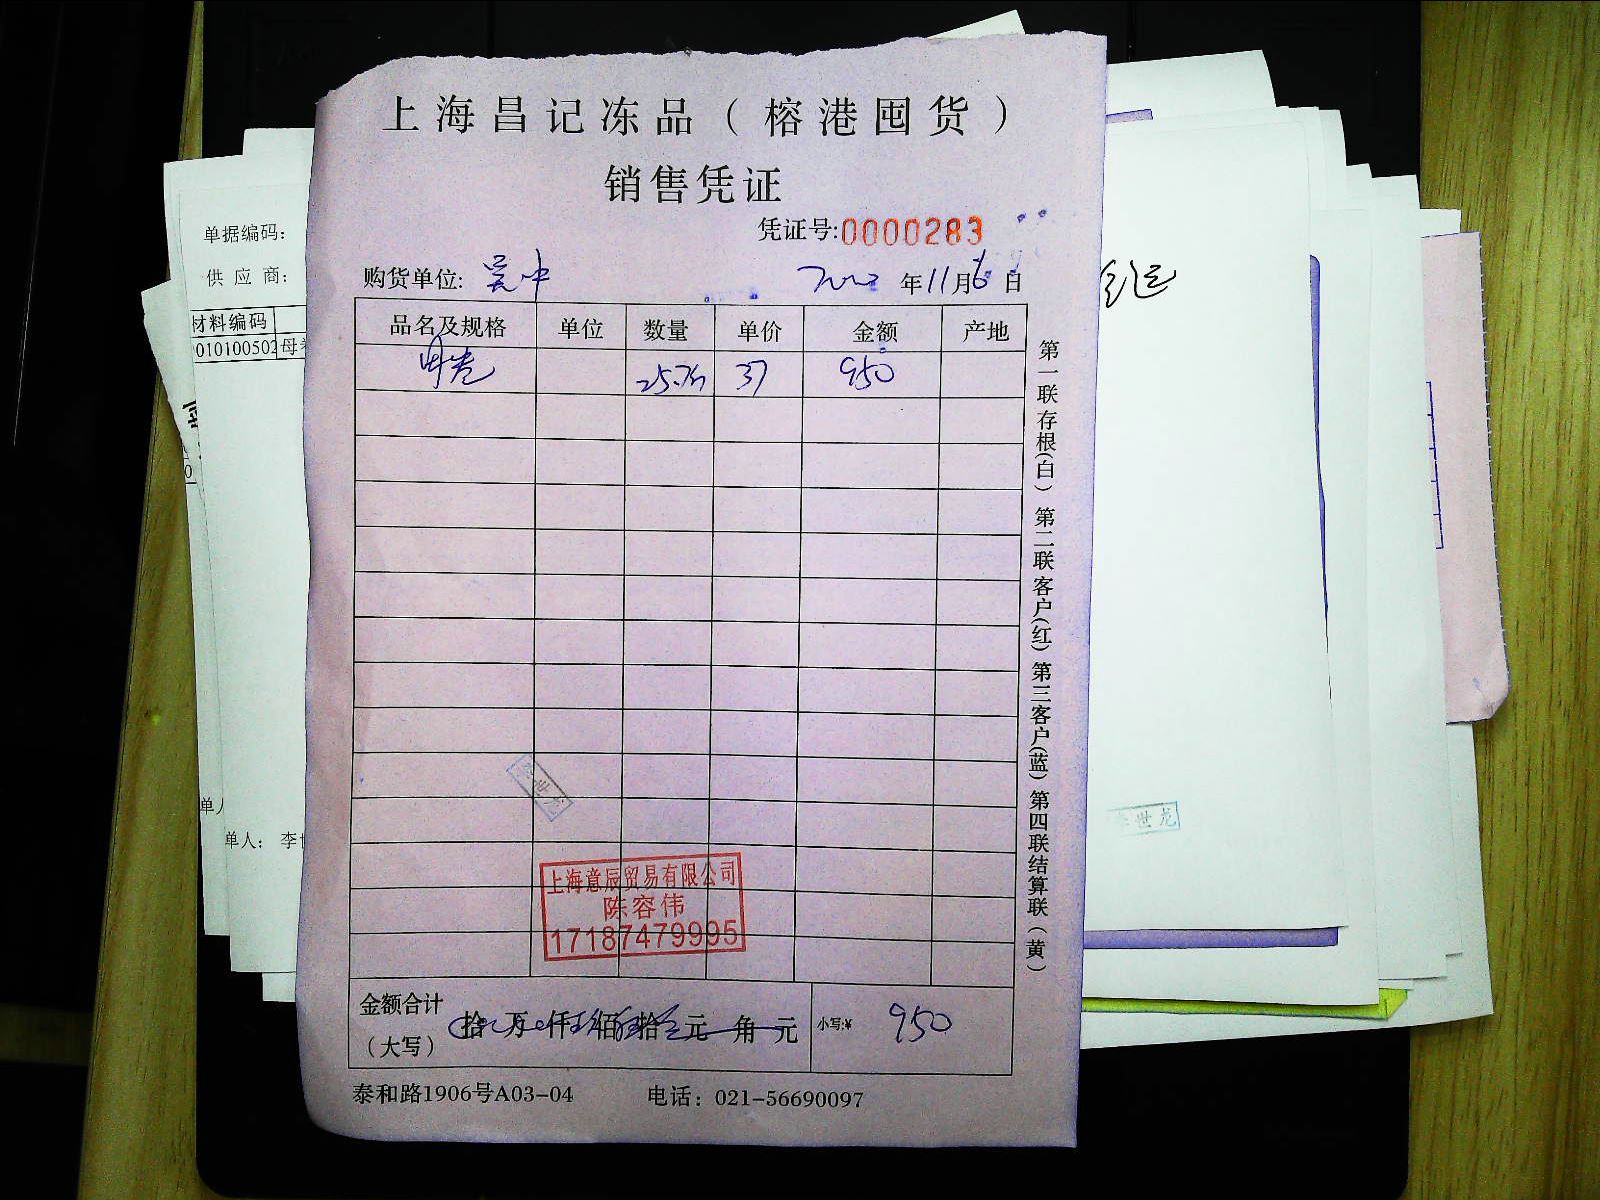 上海昌记冻品（榕港囤货）
销售凭证
凭证号:0000283
购货单位: 吴中 年11月6日
品名及规格 单位 数量 单价 金额 产地
37 950
第一联存根(白) 第二联客户(红) 第三客户(蓝) 第四联结算联(黄)
上海意辰贸易有限公司
陈容伟
17187479995
金额合计
（大写）
拾 万 仟 佰 拾 元 角 元
小写:¥ 950
泰和路1906号A03-04 电话：021-56690097
单据编码:
供应商:
材料编码
010100502 母
单人: 李世
李世龙
世龙